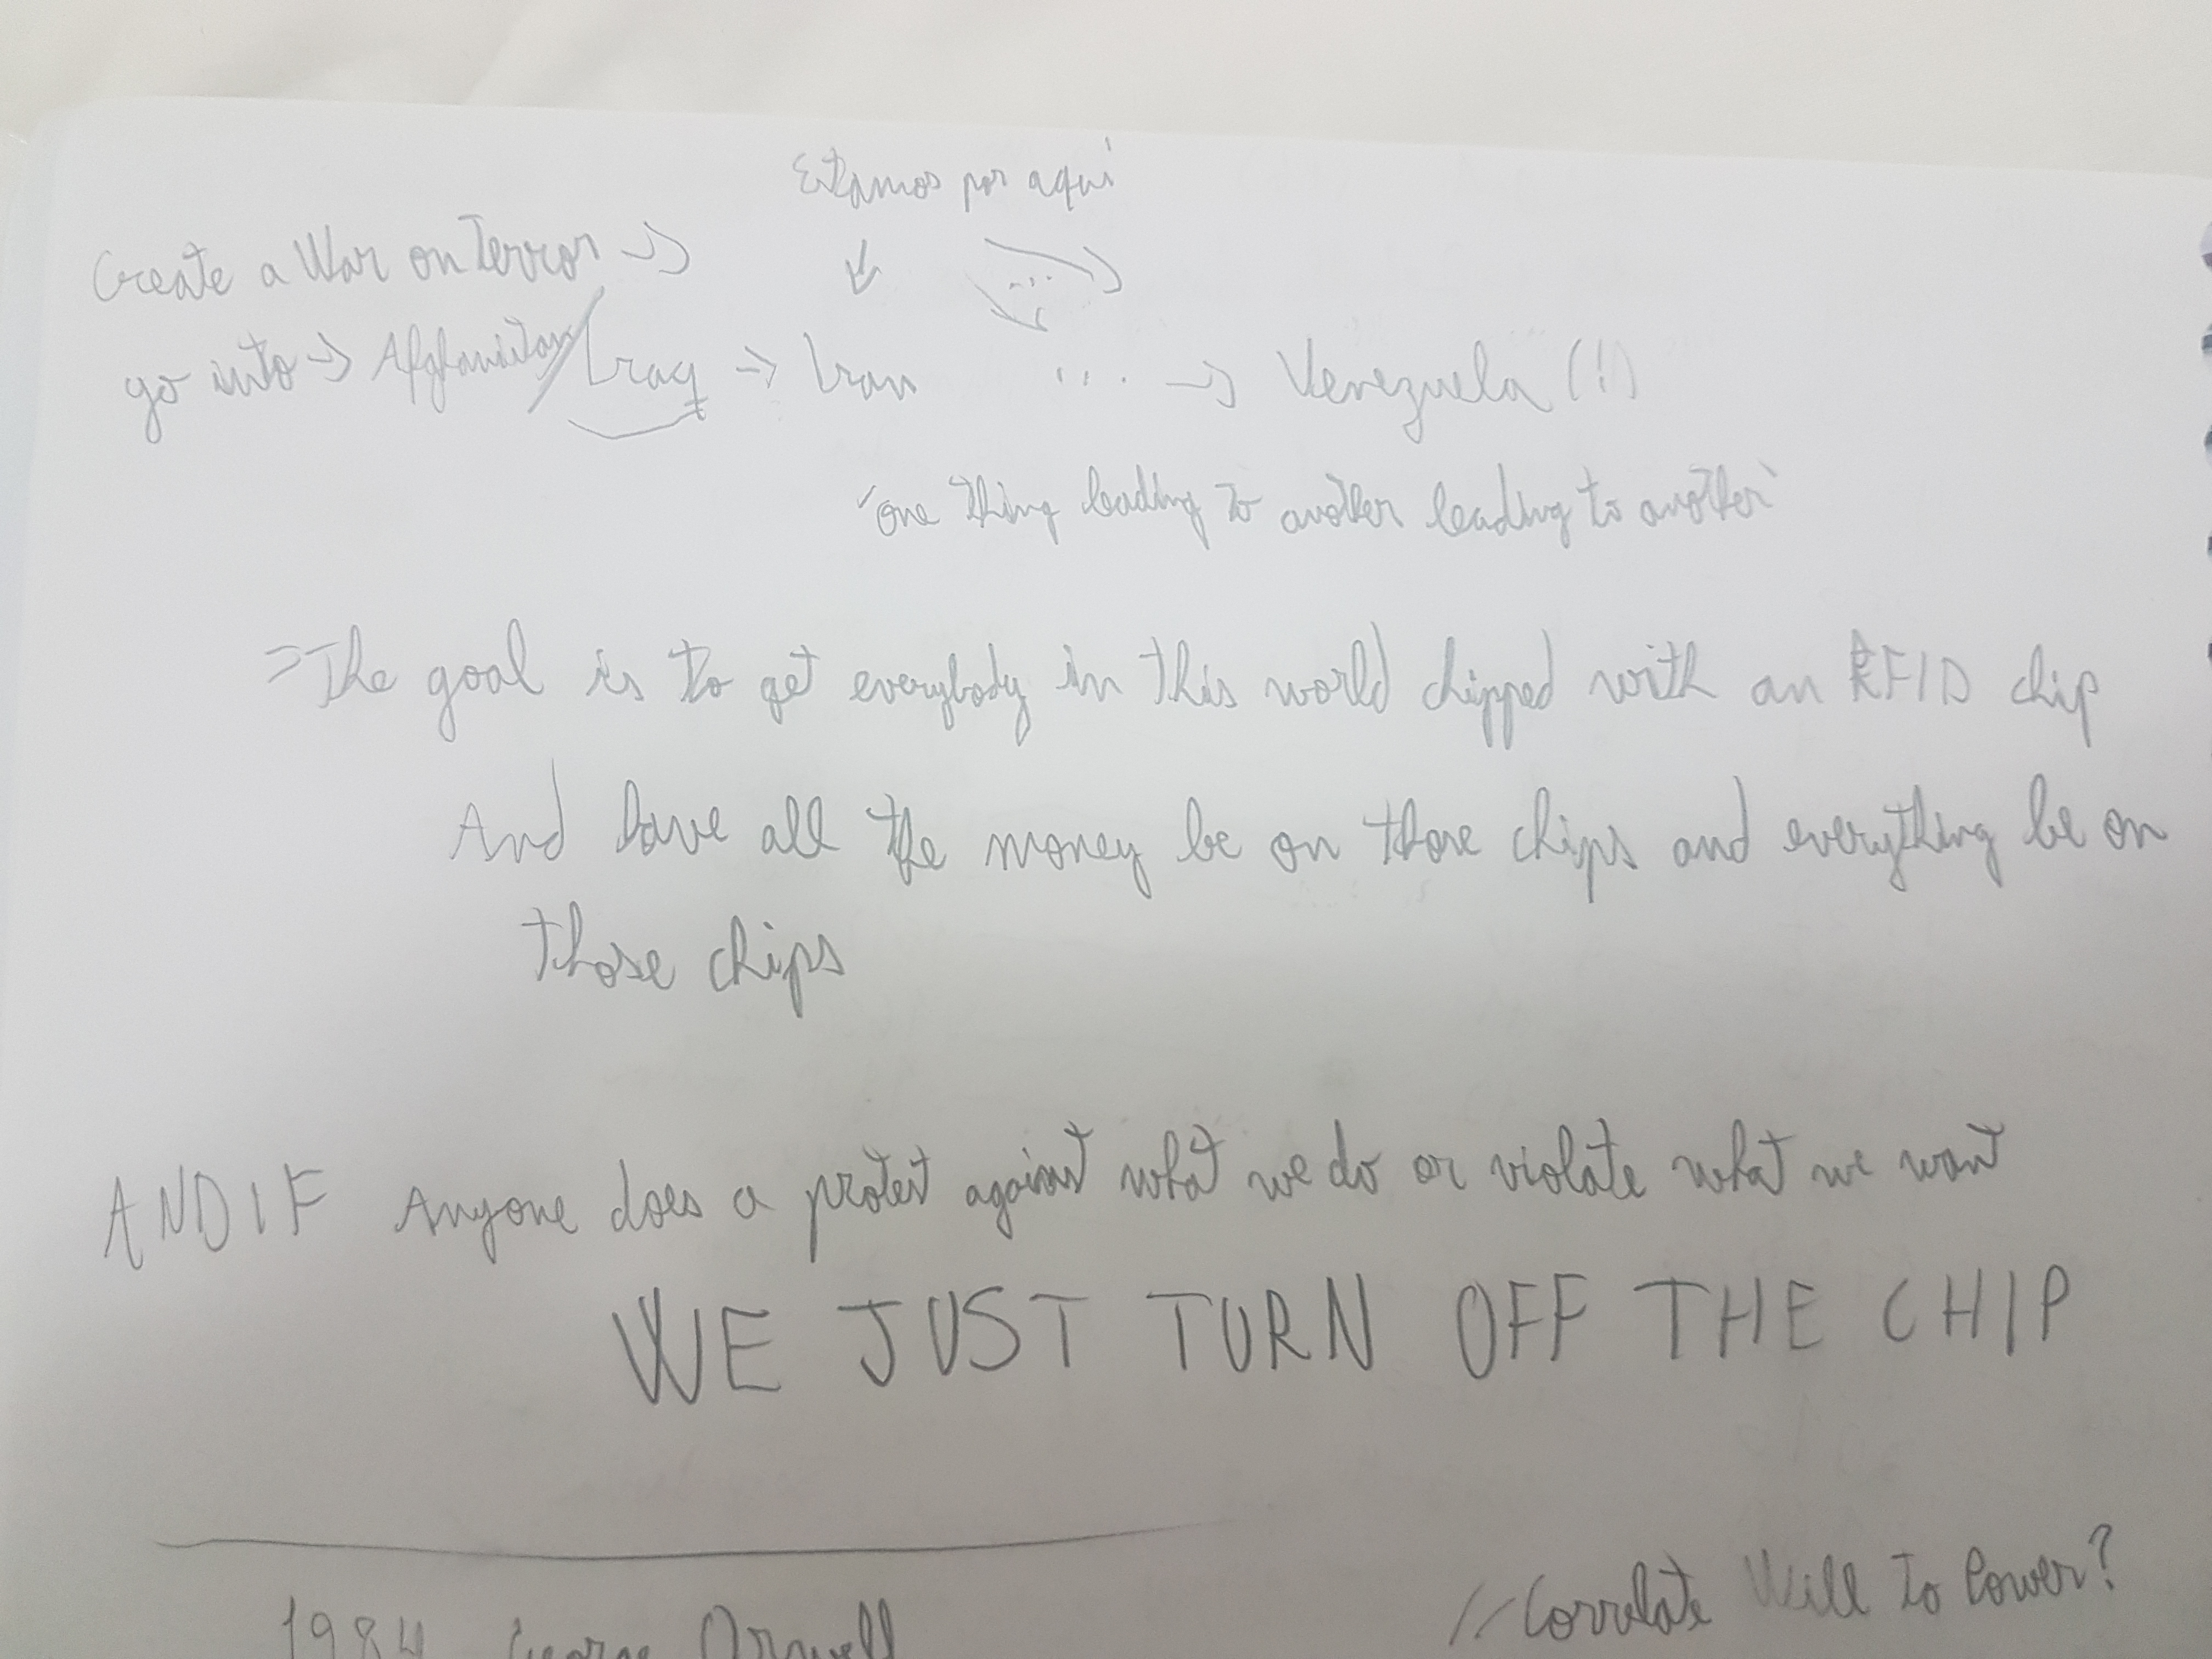 Estamos por aqui
Create a War on Terror →
go into → Afghanistan/Iraq → Iran ... → Venezuela (!)
'one thing leading to another leading to another'
=The goal is to get everybody in this world chipped with an RFID chip
And have all the money be on those chips and everything be on
those chips
AND IF Anyone does a protest against what we do or violate what we want
WE JUST TURN OFF THE CHIP
//Correlate Will to Power?
1984 George Orwell